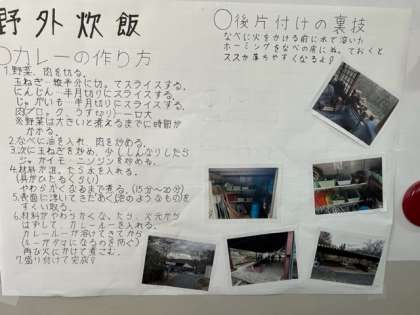 野外炊飯
○カレーの作り方
1.野菜、肉を切る。
玉ねぎ…縦半分に切って、スライスする。
にんじん…半月切りにスライスする。
じゃがいも…半月切りにスライスする。
肉(ブロック、うすぎり)…一口大
※野菜は大きいと煮えるまでに時間が
かかる。
2.なべに油を入れ、肉を炒める。
3.次に玉ねぎを炒め、少ししんなりしたら
ジャガイモ・ニンジンを炒める。
4.材料が混ったら水を入れる。
(具がひたるくらい)
やわらかくなるまで煮る。(15分~20分)
5.表面に浮いてきたあく(泡のようなもの)を
すくい取る。
6.材料がやわらかくなったら、火元から
はずして、カレールーを入れる。
カレールーが溶けてきてから
(ルーがダマになるのを防ぐ)
再び火にかけて煮こむ。
7.盛り付けて完成!
○後片付けの裏技
なべに火をかける前に水で溶いた
ホーミングをなべの底にぬっておくと
ススが落ちやすくなるよ!